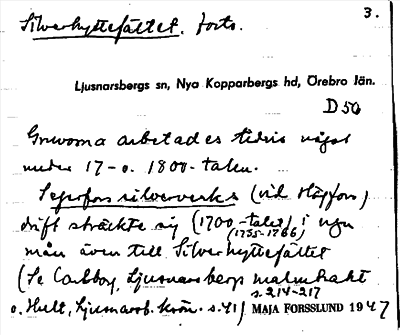 Silverhyttefältet. forts. 3.
Ljusnarsbergs sn, Nya Kopparbergs hd, Örebro län.
D 50
Gruvorna arbetades tidvis något
under 17- o. 1800-talen.
Segerfors silververks (vid Högfors)
drift sträckte sig (1700-talet) i
(1755-1766)
mån även till Silverhyttefältet
(Se Carlborg, Ljusnarsbergs malmtrakt
s. 214-217
o. Hult, Ljusnarsb. krön. s. 41) MAJA FORSSLUND 1947